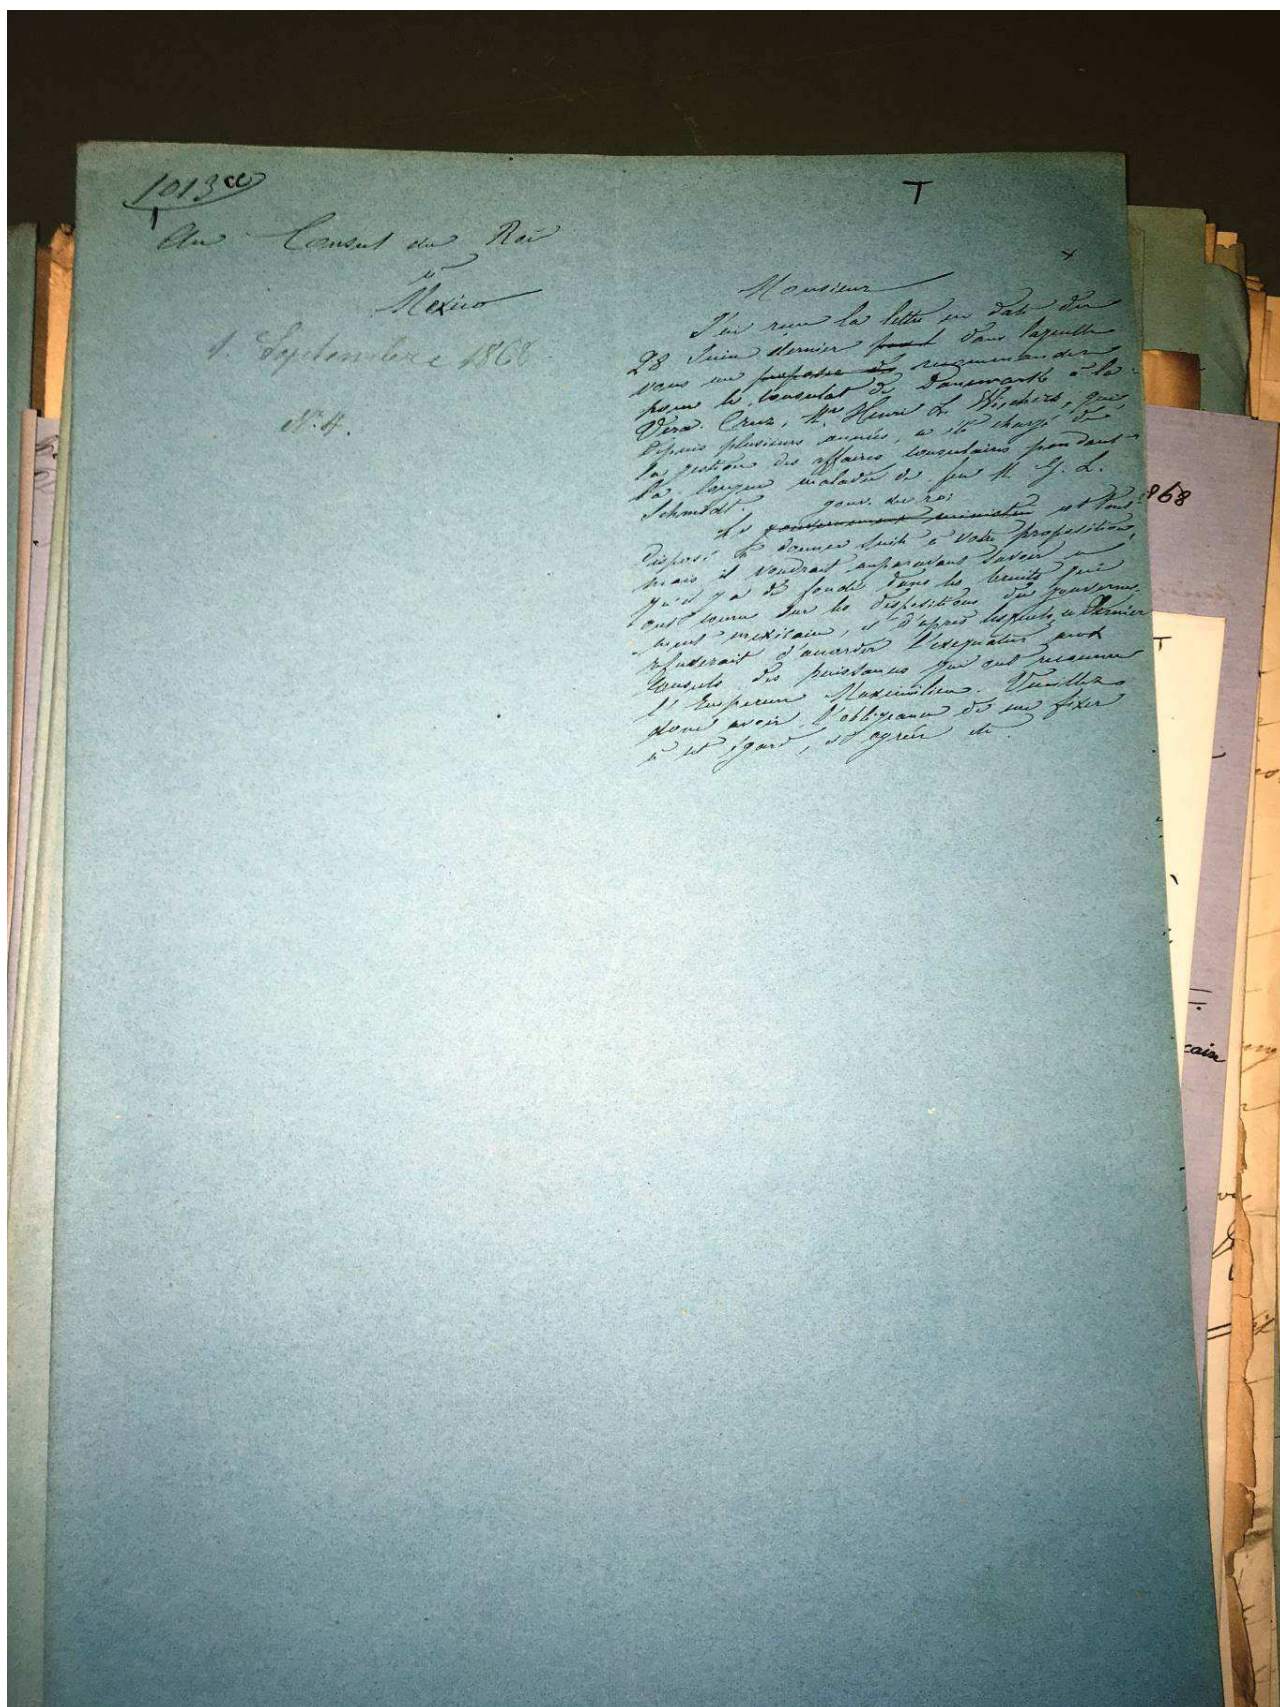 1013
T
Au Consul du Roi
à
Mexico
1. Septembre 1868
N. 4.
Monsieur
J'ai reçu la lettre en date du
28 Juin dernier dans laquelle
vous me proposer recommandez
pour le consulat de Danemark à la
Vera Cruz, Mr Henri L. Wichers, qui
depuis plusieurs années, a été chargé de
la gestion des affaires consulaires pendant
la longue maladie de feu M. G. L.
Schmidt.
gouv. du roi
Le gouvernement est tout
disposé de donner suite à votre proposition,
mais il voudrait auparavant savoir ce
qu'il y a de fondé dans les bruits qui
ont couru sur les dispositions du gouverne-
ment mexicain, et d'après lesquels ce dernier
refuserait d'accorder l'exequatur aux
Consuls des puissances qui ont reconnu
l'Empereur Maximilien. Veuillez
donc avoir l'obligeance de me fixer
à cet égard, et agréer etc.
868
caire